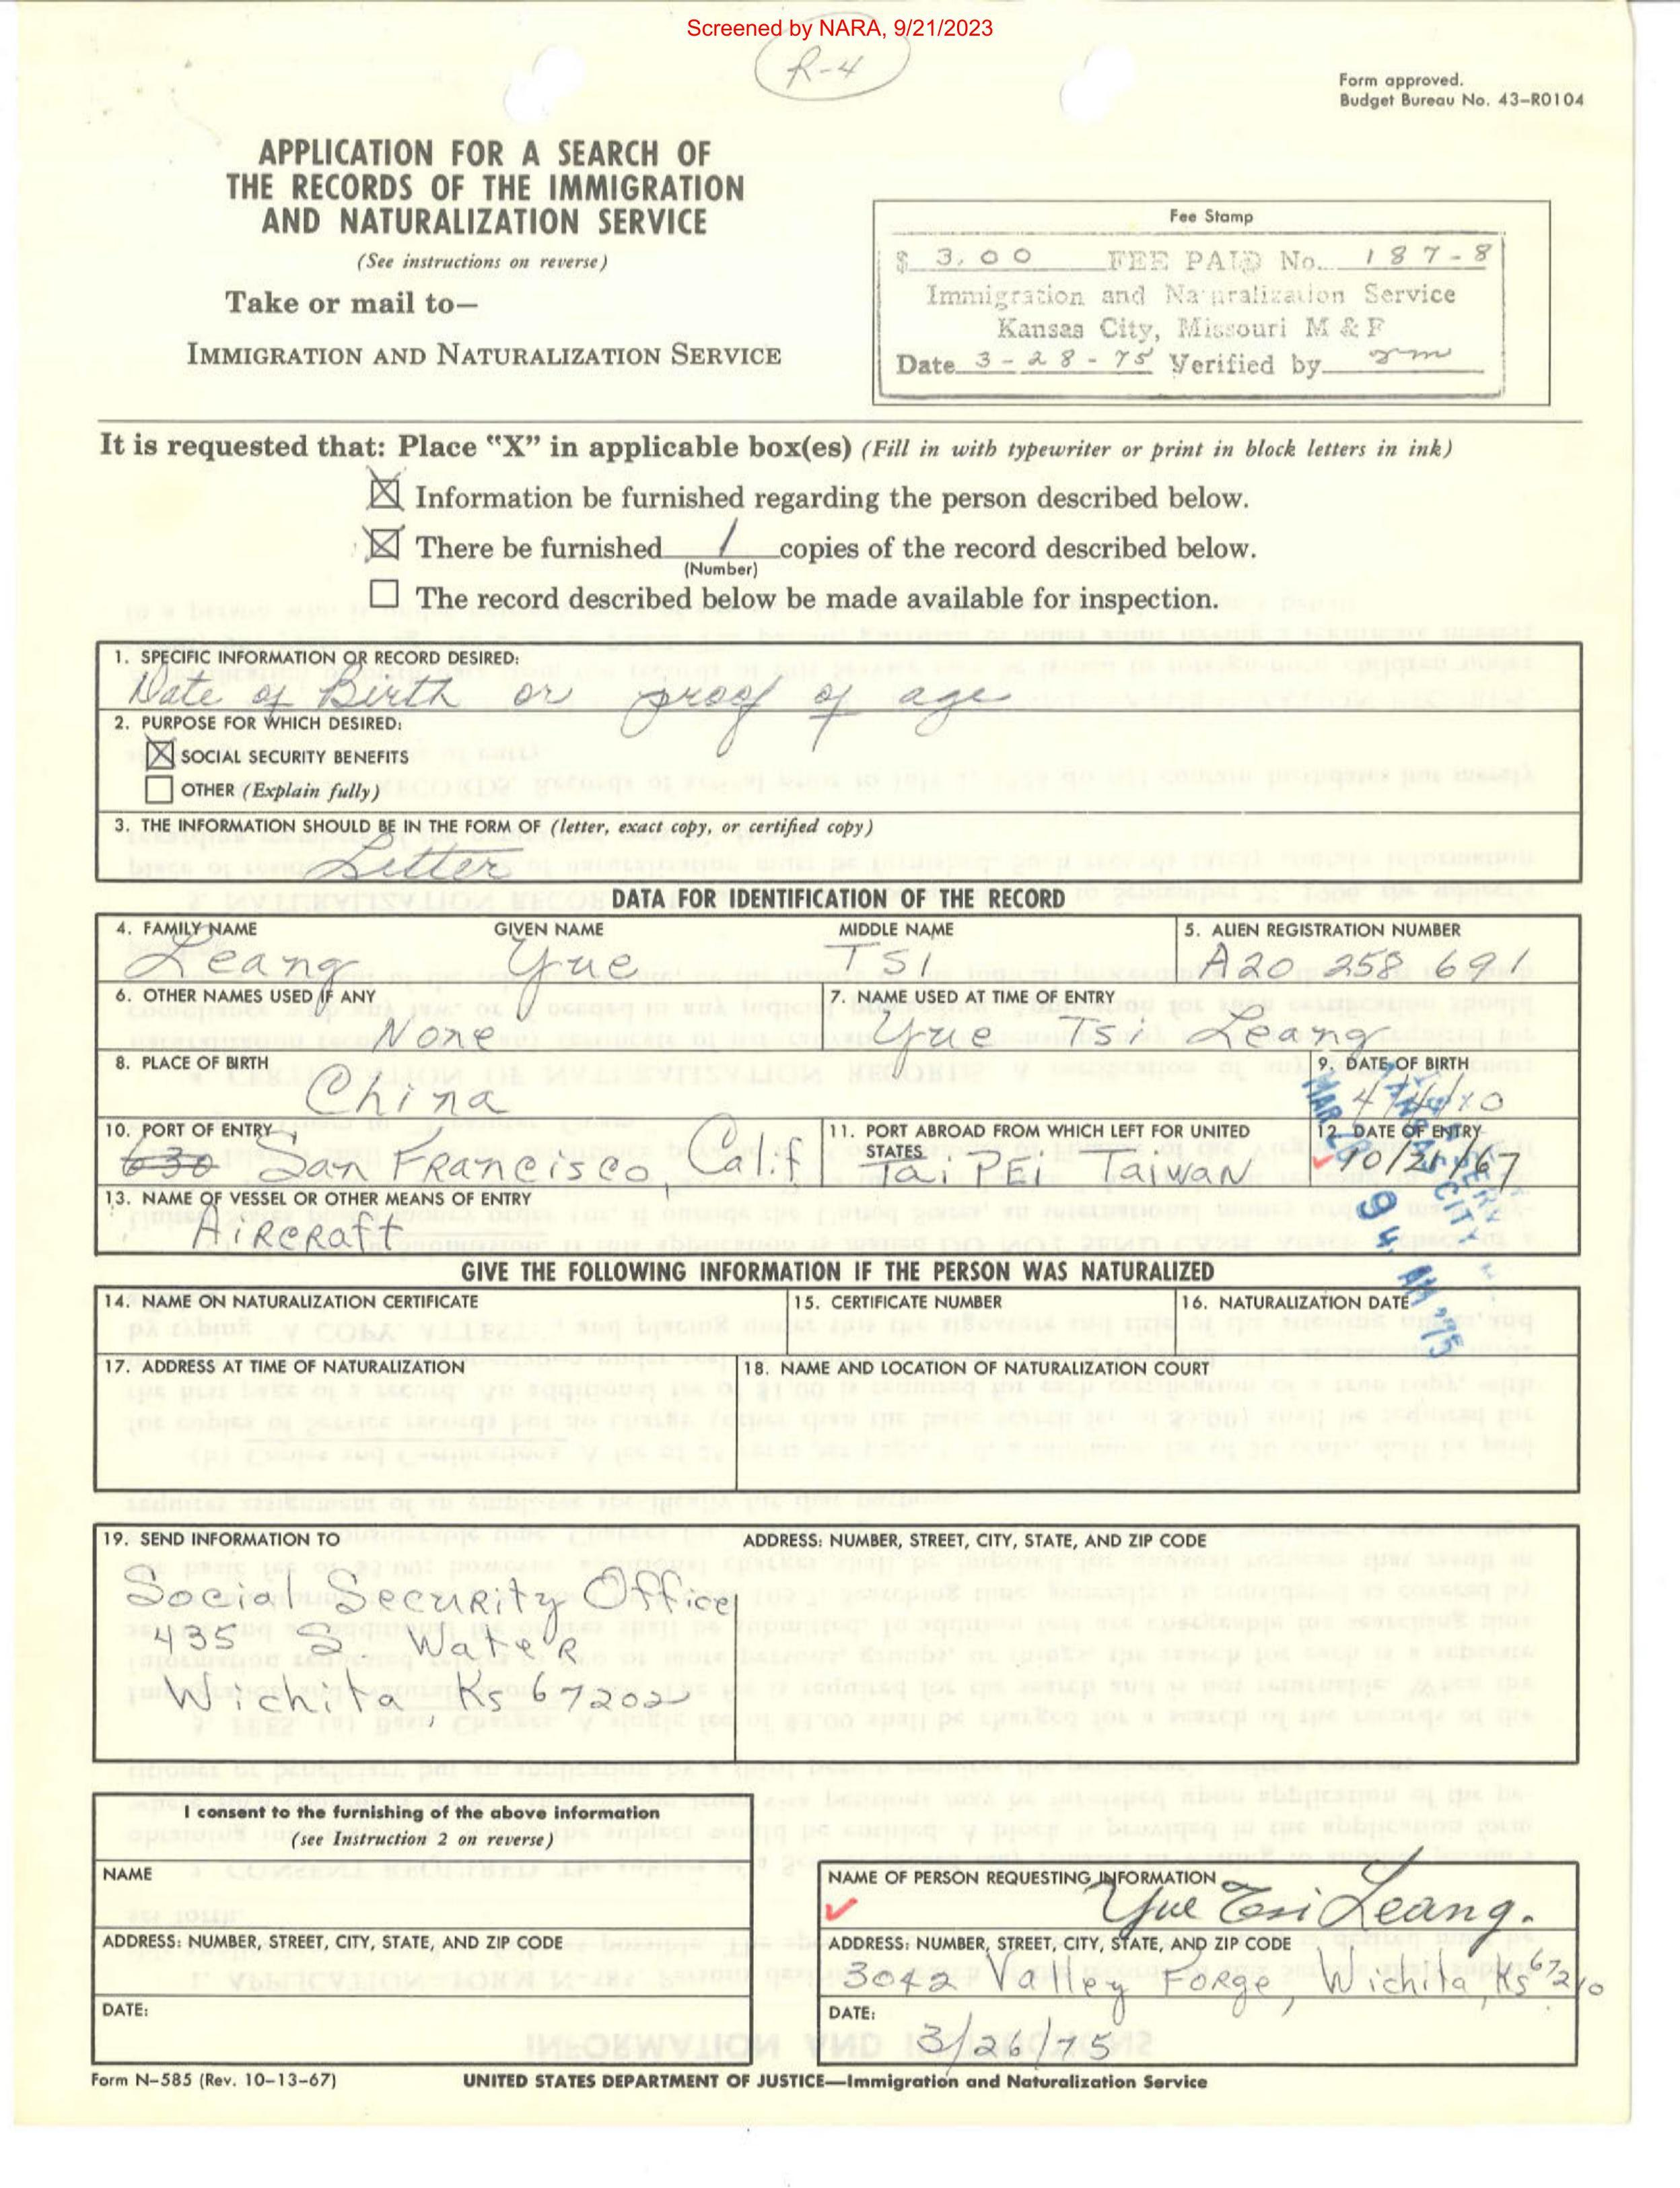 Screened by NARA, 9/21/2023
R-4
Form approved.
Budget Bureau No. 43–R0104
APPLICATION FOR A SEARCH OF
THE RECORDS OF THE IMMIGRATION
AND NATURALIZATION SERVICE
(See instructions on reverse)
Take or mail to—
IMMIGRATION AND NATURALIZATION SERVICE
Fee Stamp
$ 3.00 FEE PAID No. 187-8
Immigration and Naturalization Service
Kansas City, Missouri M & F
Date 3-28-75 Verified by
It is requested that: Place "X" in applicable box(es) (Fill in with typewriter or print in block letters in ink)
Information be furnished regarding the person described below.
There be furnished 1 copies of the record described below.
(Number)
The record described below be made available for inspection.
1. SPECIFIC INFORMATION OR RECORD DESIRED:
Date of Birth or proof of age
2. PURPOSE FOR WHICH DESIRED:
SOCIAL SECURITY BENEFITS
OTHER (Explain fully)
3. THE INFORMATION SHOULD BE IN THE FORM OF (letter, exact copy, or certified copy)
Letter
DATA FOR IDENTIFICATION OF THE RECORD
4. FAMILY NAME GIVEN NAME MIDDLE NAME 5. ALIEN REGISTRATION NUMBER
Leang Yue TSI A20 258 691
6. OTHER NAMES USED IF ANY 7. NAME USED AT TIME OF ENTRY
None Yue Tsi Leang
8. PLACE OF BIRTH 9. DATE OF BIRTH
China
10. PORT OF ENTRY 11. PORT ABROAD FROM WHICH LEFT FOR UNITED STATES 12. DATE OF ENTRY
630 San Francisco, Calif TaiPEi TaiwaN 10/21/67
13. NAME OF VESSEL OR OTHER MEANS OF ENTRY
AiRCRaft
GIVE THE FOLLOWING INFORMATION IF THE PERSON WAS NATURALIZED
14. NAME ON NATURALIZATION CERTIFICATE 15. CERTIFICATE NUMBER 16. NATURALIZATION DATE
17. ADDRESS AT TIME OF NATURALIZATION 18. NAME AND LOCATION OF NATURALIZATION COURT
19. SEND INFORMATION TO ADDRESS: NUMBER, STREET, CITY, STATE, AND ZIP CODE
Social SecuRity Office
435 S. WateR
Wichita, Ks 67202
I consent to the furnishing of the above information
(see Instruction 2 on reverse)
NAME
ADDRESS: NUMBER, STREET, CITY, STATE, AND ZIP CODE
DATE:
NAME OF PERSON REQUESTING INFORMATION
Yue Tsi Leang.
ADDRESS: NUMBER, STREET, CITY, STATE, AND ZIP CODE
3042 Valley Forge, Wichita, Ks 67210
DATE:
3/26/75
Form N–585 (Rev. 10–13–67) UNITED STATES DEPARTMENT OF JUSTICE—Immigration and Naturalization Service